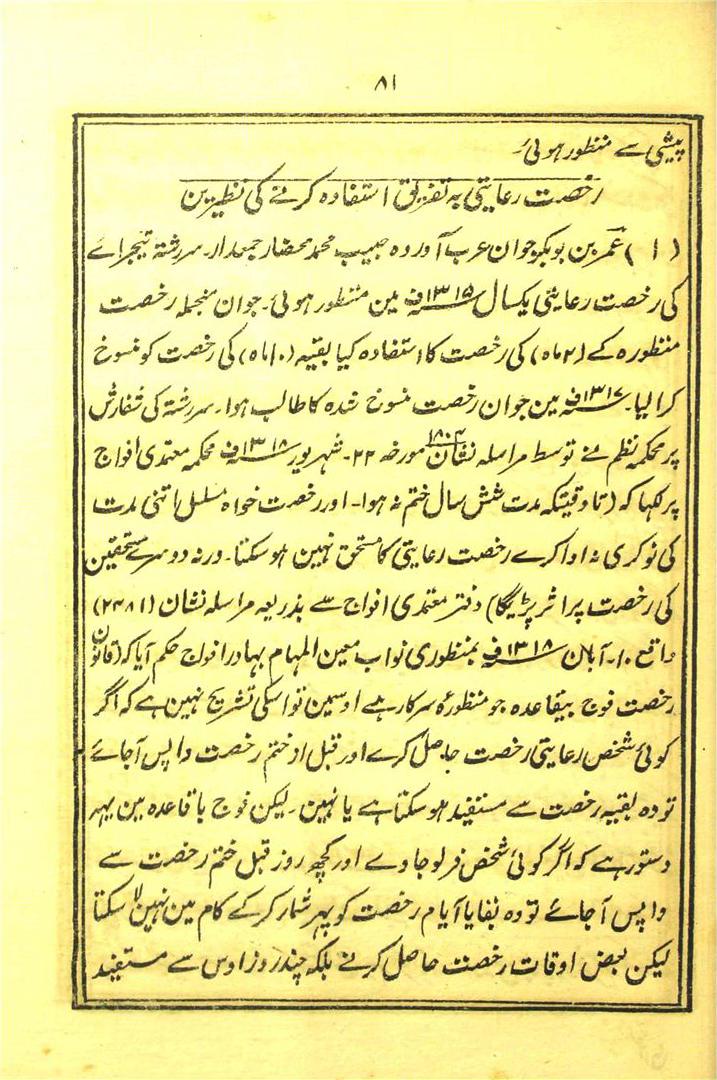 ۸۱
پیشی سے منظور ہوئی۔
رخصت رعایتی بہ تفریق استفادہ کرنے کی نظیرین
(۱) عمر بن بوبکر جوان عرب آوردہ حبیب محمد محضار جمعدار۔ سررشتۂ تیجرائے
کی رخصت رعایتی یکسال ۱۳۱۵ف مین منظور ہوئی۔ جوان منجملہ رخصت
منظورہ کے (۲ ماہ) کی رخصت کا استفادہ کیا بقیہ (۱۰ ماہ) کی رخصت کو منسوخ
کرالیا۔ ۱۳۱۷ف مین جوان رخصت منسوخ شدہ کا طالب ہوا۔ سررشتہ کی سفارش
پر محکمہ نظم نے توسط مراسلہ نشان ۱۸۰۴ مورخہ ۲۲۔ شہریور ۱۳۱۸ف محکمہ معتمدی افواج
پر لکہا کہ (تاوقتیکہ مدت شش سال ختم نہ ہو۔ اور رخصت خواہ مسلسل اتنی مدت
کی نوکری نہ ادا کرے رخصت رعایتی کا مستحق نہین ہو سکتا۔ ورنہ دوسرے مستحقین
کی رخصت پر اثر پڑیگا) دفتر معتمدی افواج سے بذریعہ مراسلہ نشان (۲۴۸۱)
واقع ۱۰۔ آبان ۱۳۱۸ف بمنظوری نواب معین المہام بہادر افواج حکم آیا کہ (قانون
رخصت فوج بیقاعدہ جو منظورۂ سرکار ہے اوسمین تو اسکی تشریح نہین ہے کہ اگر
کوئی شخص رعایتی رخصت حاصل کرے اور قبل از ختم رخصت واپس آجائے
تو وہ بقیہ رخصت سے مستفید ہو سکتا ہے یا نہین۔ لیکن فوج باقاعدہ مین یہہ
دستور ہے کہ اگر کوئی شخص فرلو جاوے اور کچھ روز قبل ختم رخصت سے
واپس آجائے تو وہ بقایا آیام رخصت کو پہر شمار کرکے کام مین نہین لا سکتا
لیکن بعض اوقات رخصت حاصل کرنے بلکہ چند روز اوس سے مستفید